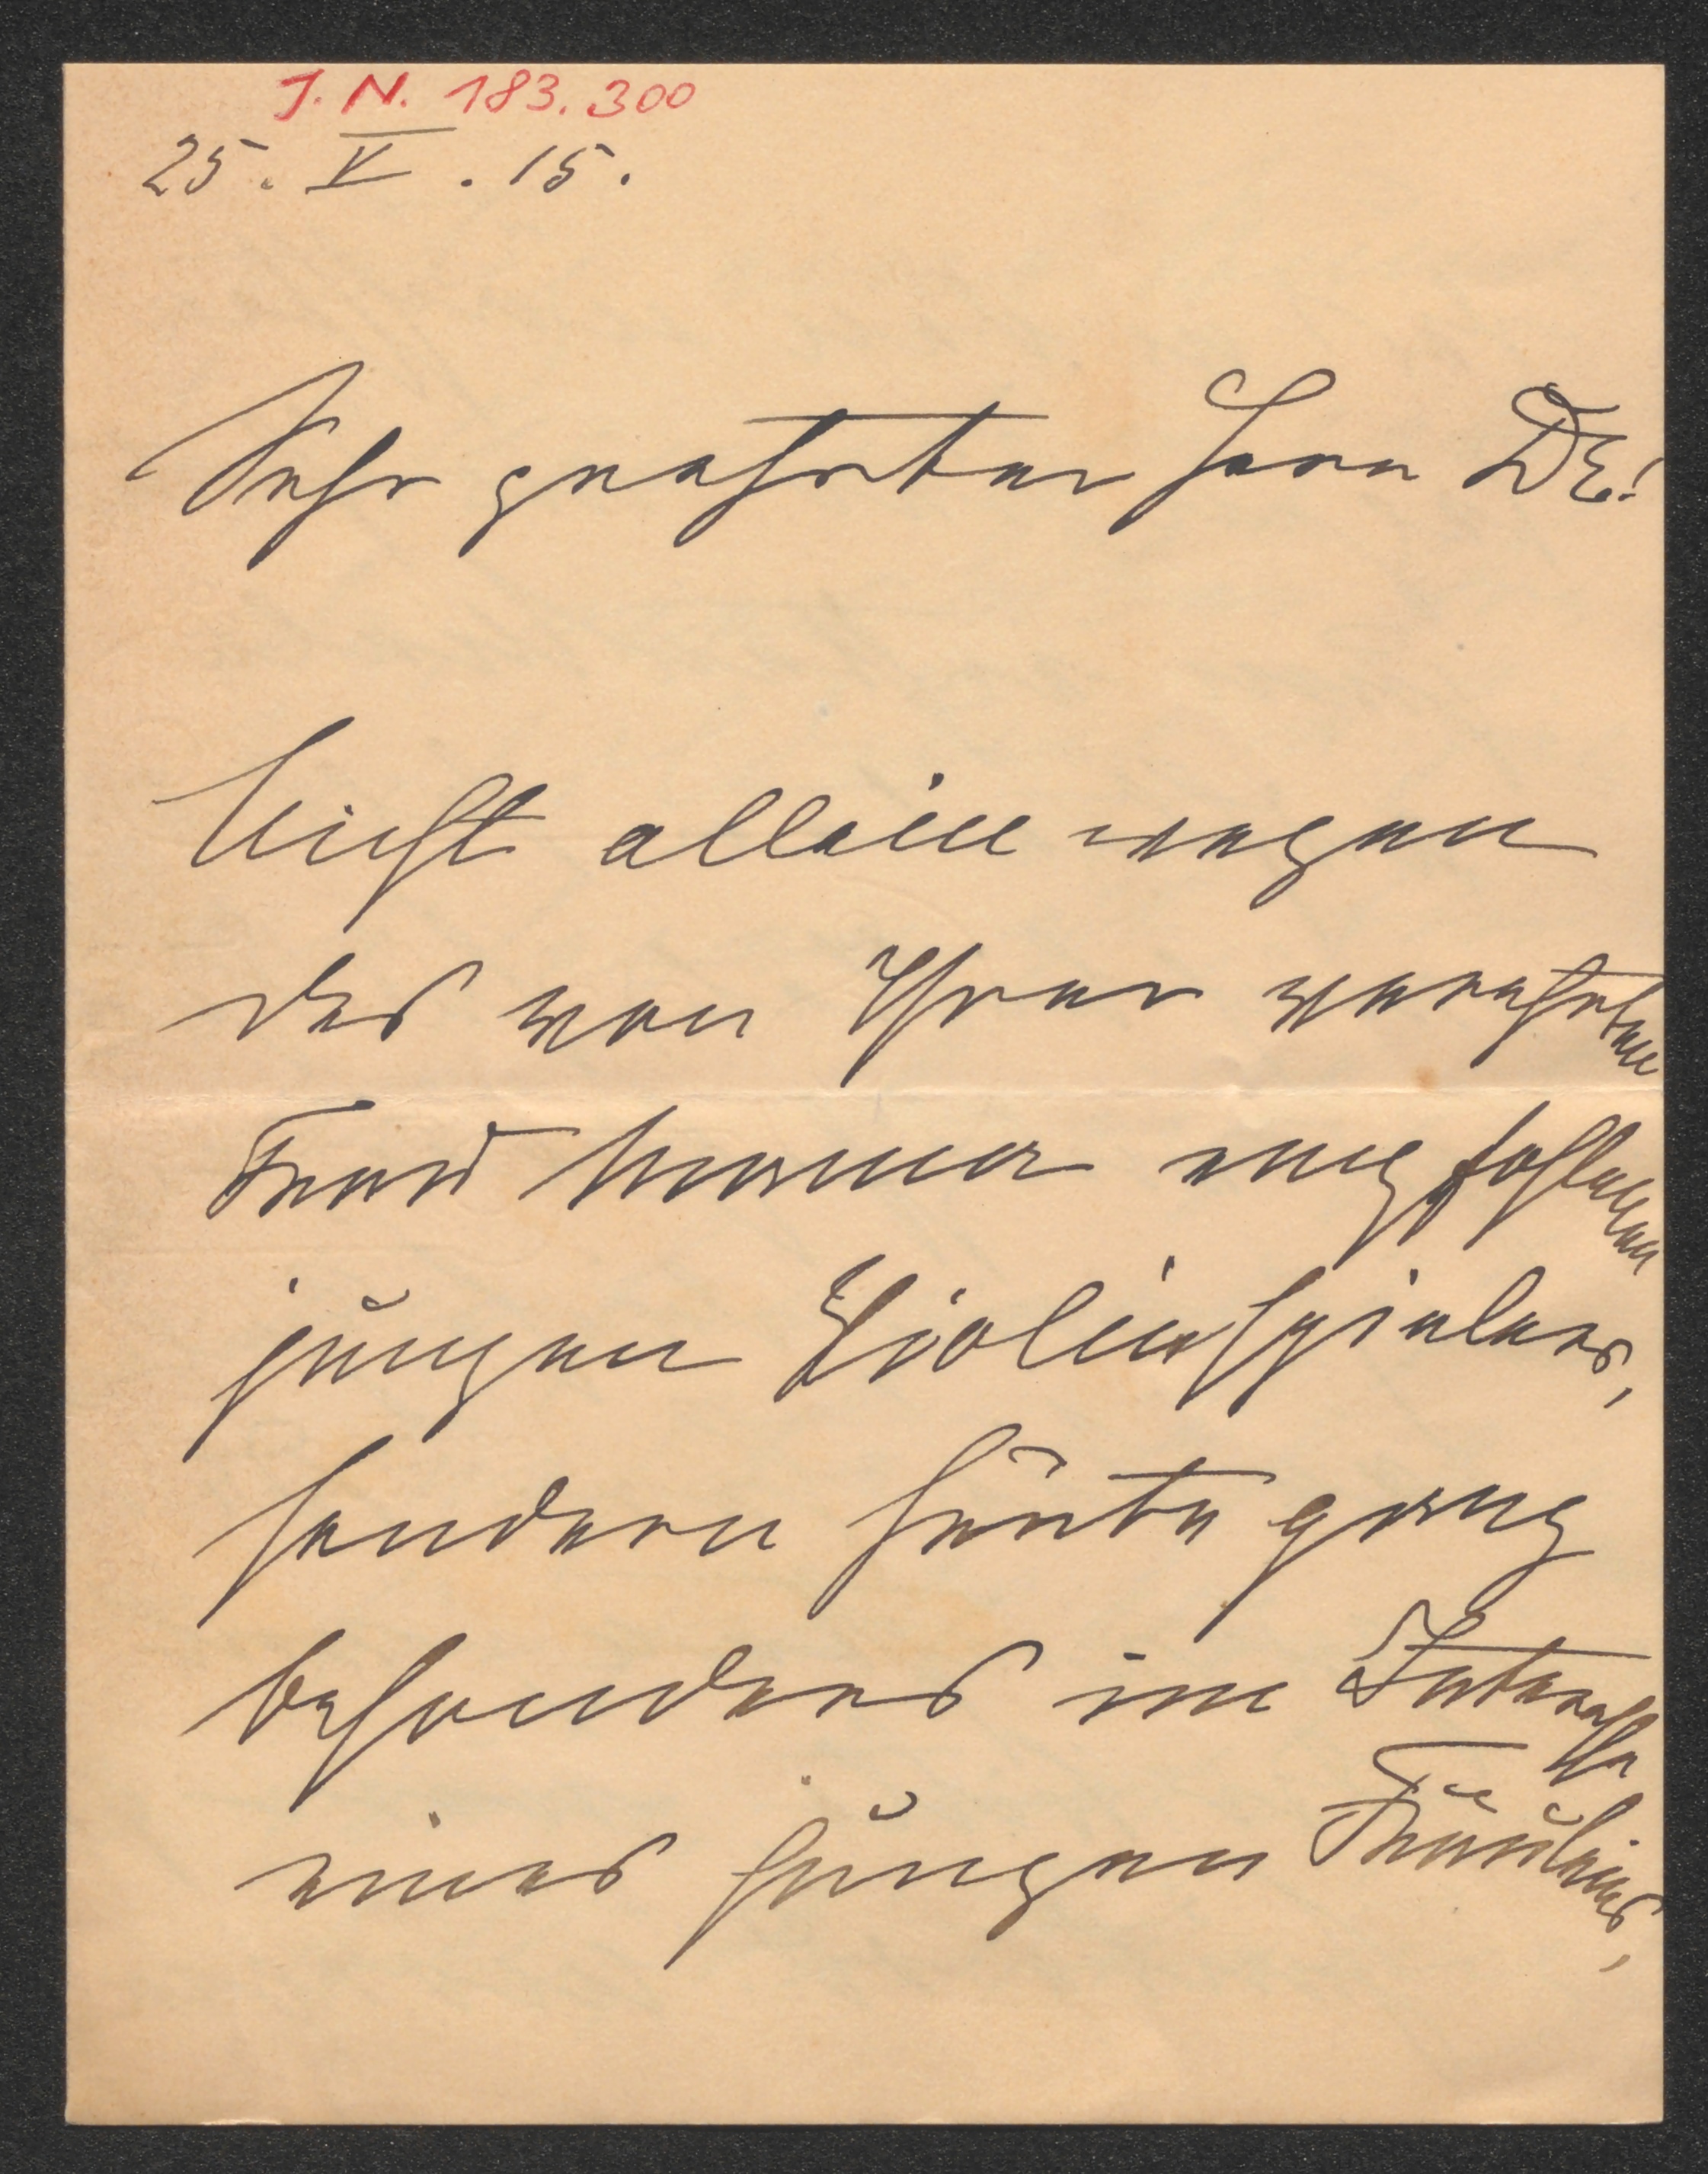 J. N. 183.300
25. V. 15.
Sehr geehrter Herr Dr!
Nicht allein wegen
des von Ihrer verehrten
Frau Mama empfohlenen
jungen Violinspielers,
sondern heute ganz
besonders im Interesse
eines jungen Fräuleins,